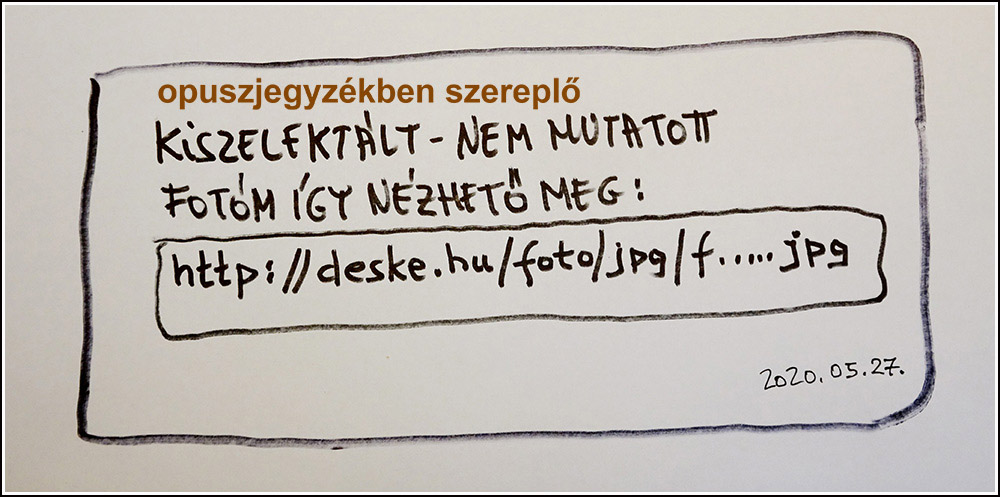 opuszjegyzékben szereplő
KiSZELEKTÁLT - NEM MUTATOTT
FOTÓM ÍGY NÉZHETŐ MEG:
http://deske.hu/foto/jpg/f.....jpg
2020.05.27.